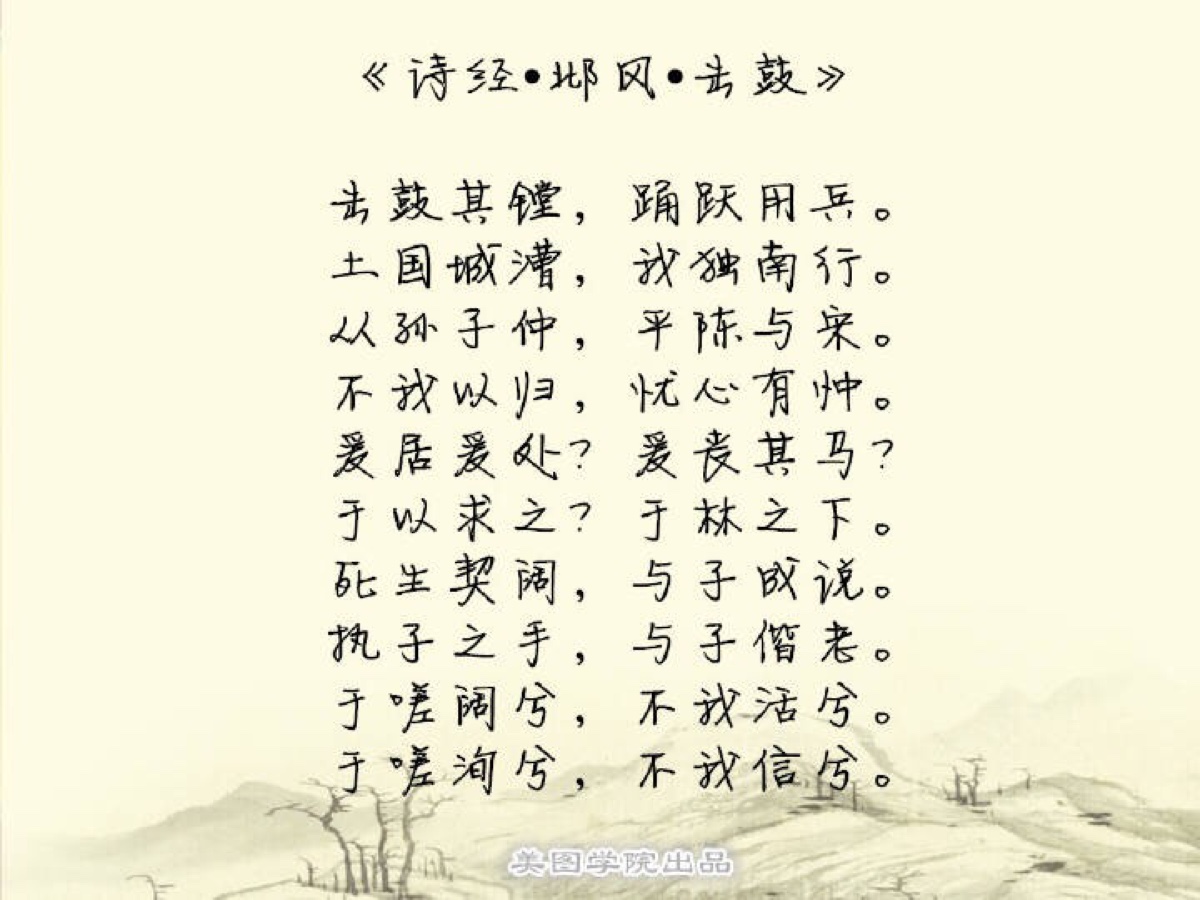 《诗经•邶风•击鼓》
击鼓其镗，踊跃用兵。
土国城漕，我独南行。
从孙子仲，平陈与宋。
不我以归，忧心有忡。
爰居爰处？爰丧其马？
于以求之？于林之下。
死生契阔，与子成说。
执子之手，与子偕老。
于嗟阔兮，不我活兮。
于嗟洵兮，不我信兮。
美图学院出品